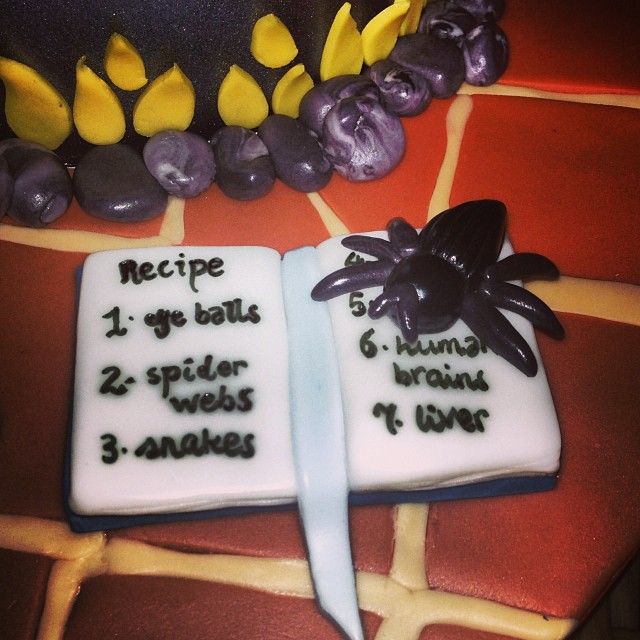 Recipe
1. eye balls
2. spider
webs
3. snakes
4.
5.
6. human
brains
7. liver